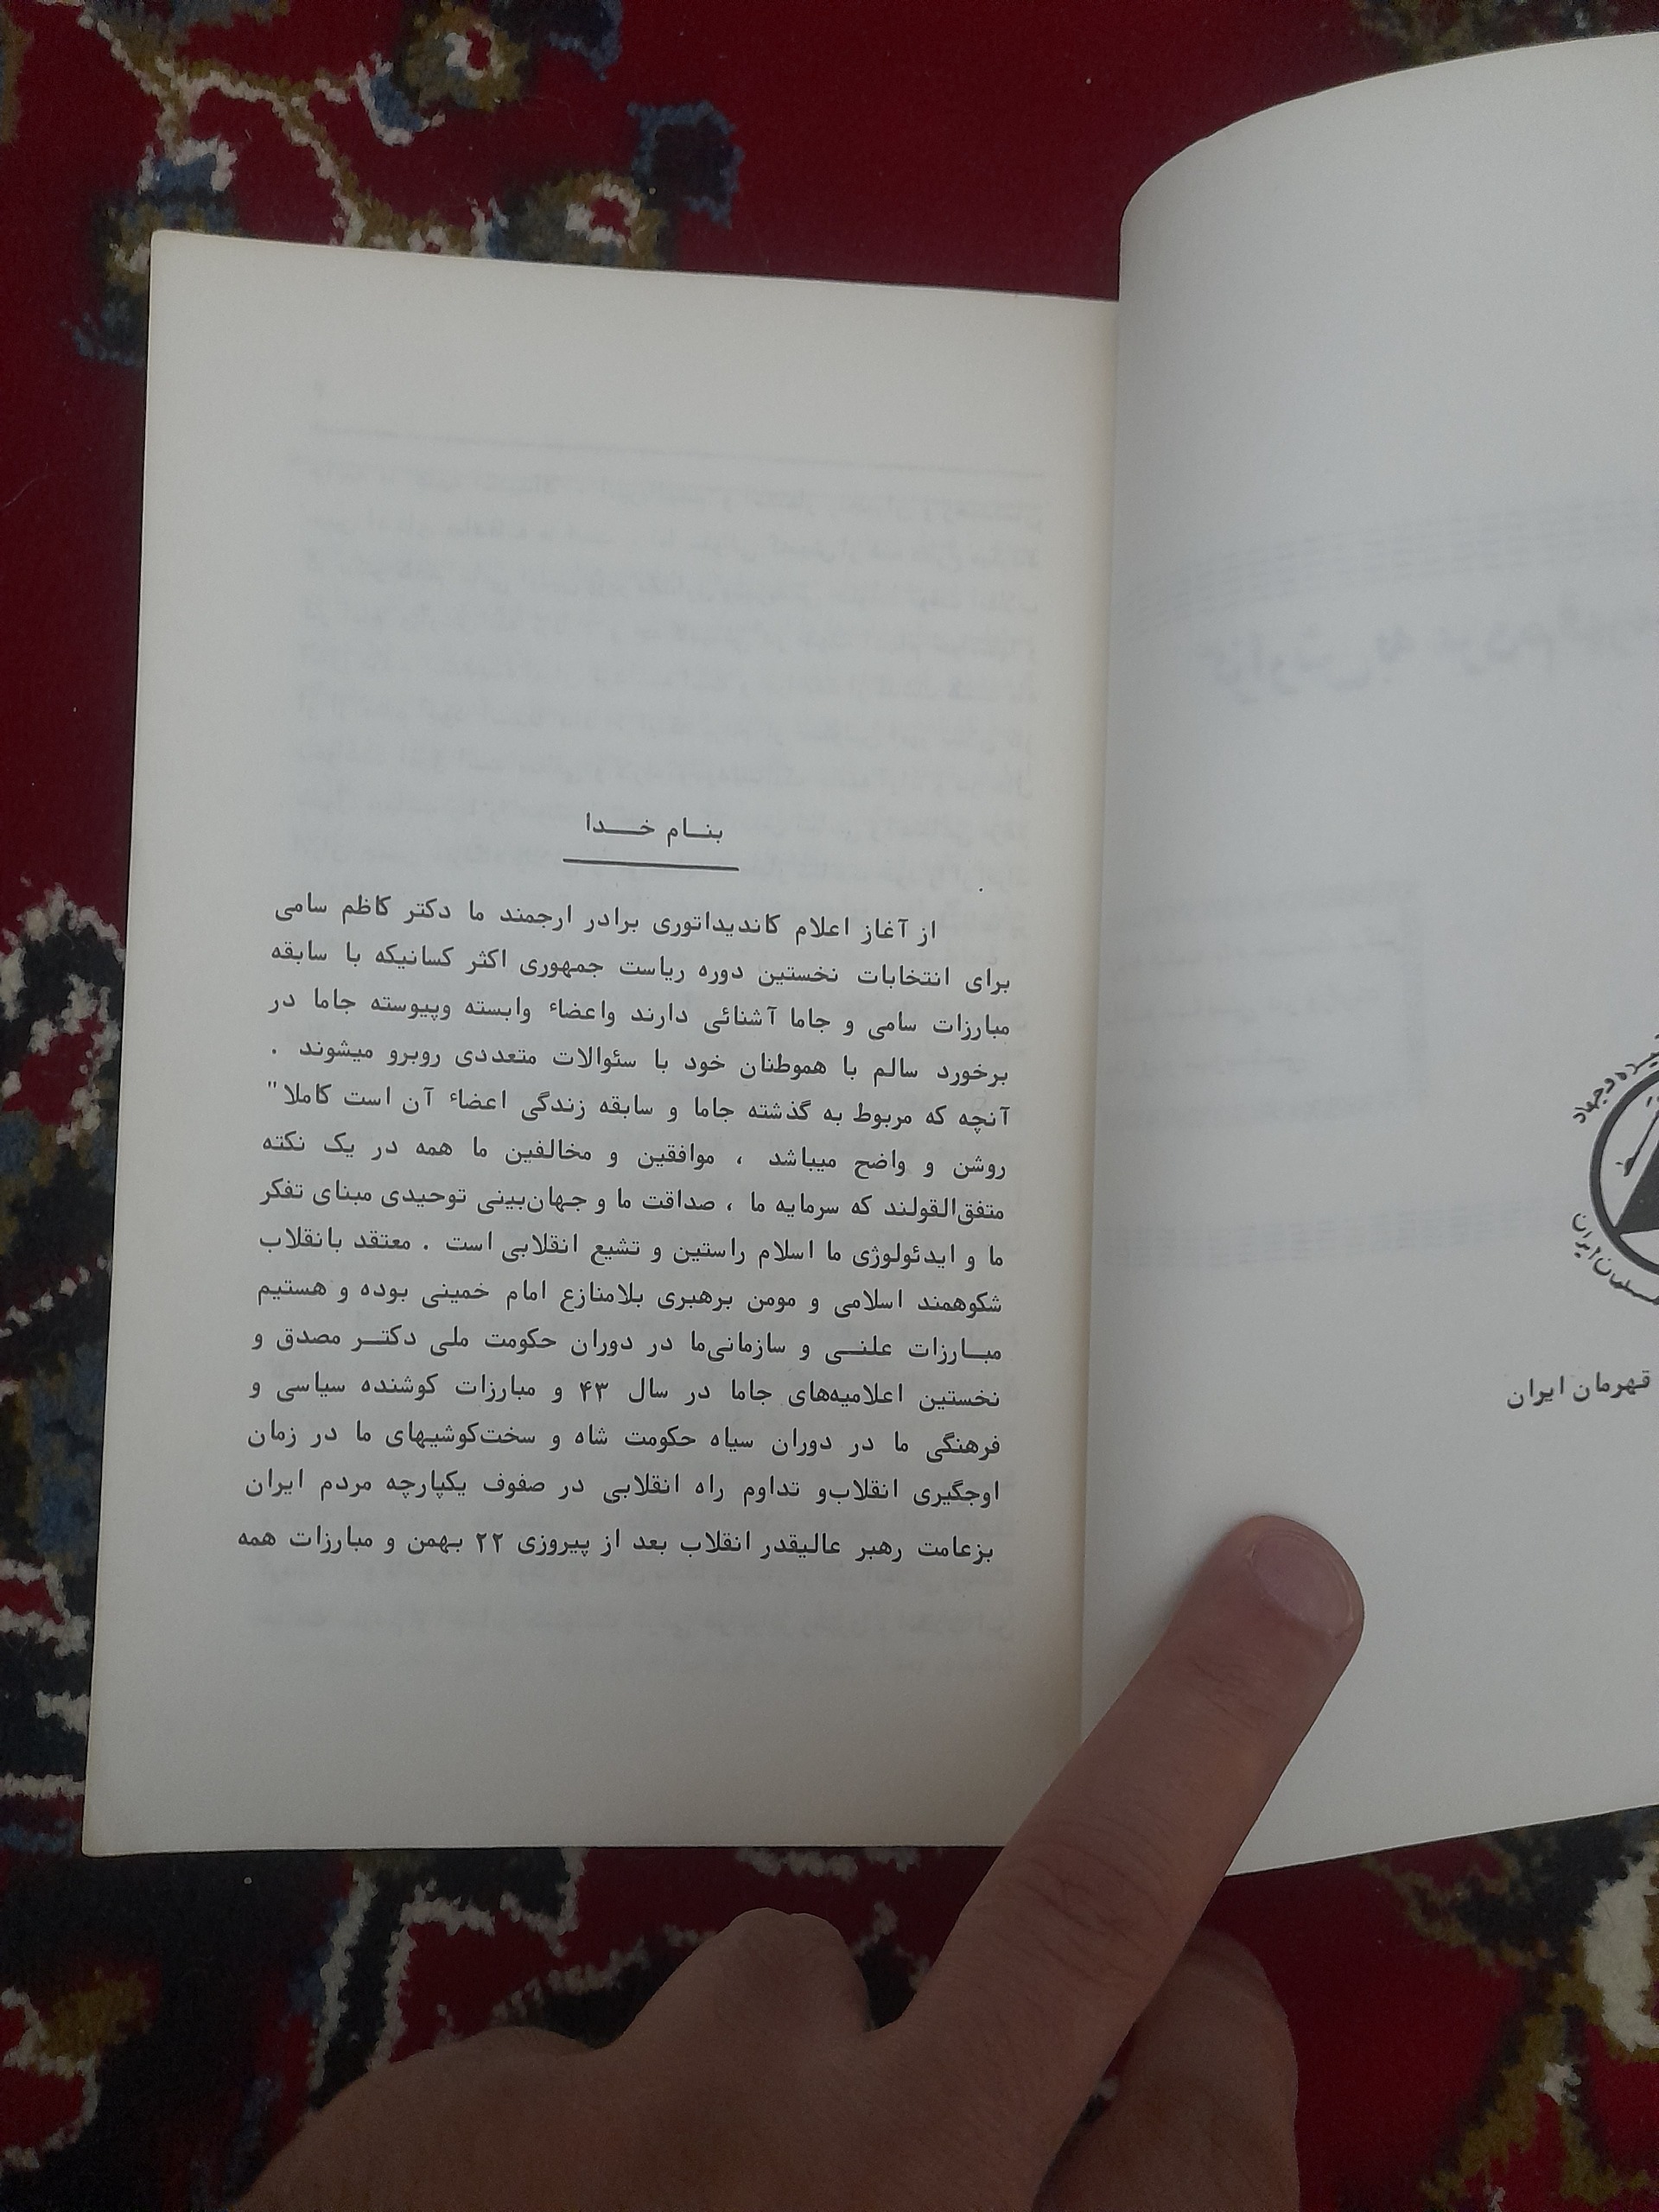 قهرمان ایران
بنــام خــــدا
از آغاز اعلام کاندیداتوری برادر ارجمند ما دکتر کاظم سامی
برای انتخابات نخستین دوره ریاست جمهوری اکثر کسانیکه با سابقه
مبارزات سامی و جاما آشنائی دارند واعضاء وابسته وپیوسته جاما در
برخورد سالم با هموطنان خود با سئوالات متعددی روبرو میشوند .
آنچه که مربوط به گذشته جاما و سابقه زندگی اعضاء آن است کاملا"
روشن و واضح میباشد ، موافقین و مخالفین ما همه در یک نکته
متفق‌القولند که سرمایه ما ، صداقت ما و جهان‌بینی توحیدی مبنای تفکر
ما و ایدئولوژی ما اسلام راستین و تشیع انقلابی است . معتقد بانقلاب
شکوهمند اسلامی و مومن برهبری بلامنازع امام خمینی بوده و هستیم
مبــارزات علنــی و سازمانی‌ما در دوران حکومت ملی دکتــر مصدق و
نخستین اعلامیه‌های جاما در سال ۴۳ و مبارزات کوشنده سیاسی و
فرهنگی ما در دوران سیاه حکومت شاه و سخت‌کوشیهای ما در زمان
اوجگیری انقلاب‌و تداوم راه انقلابی در صفوف یکپارچه مردم ایران
بزعامت رهبر عالیقدر انقلاب بعد از پیروزی ۲۲ بهمن و مبارزات همه